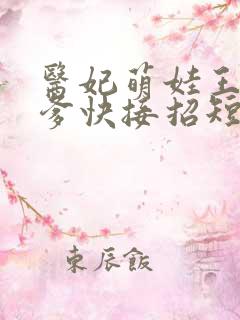 醫妃萌娃王
爹快接招短
東辰飯